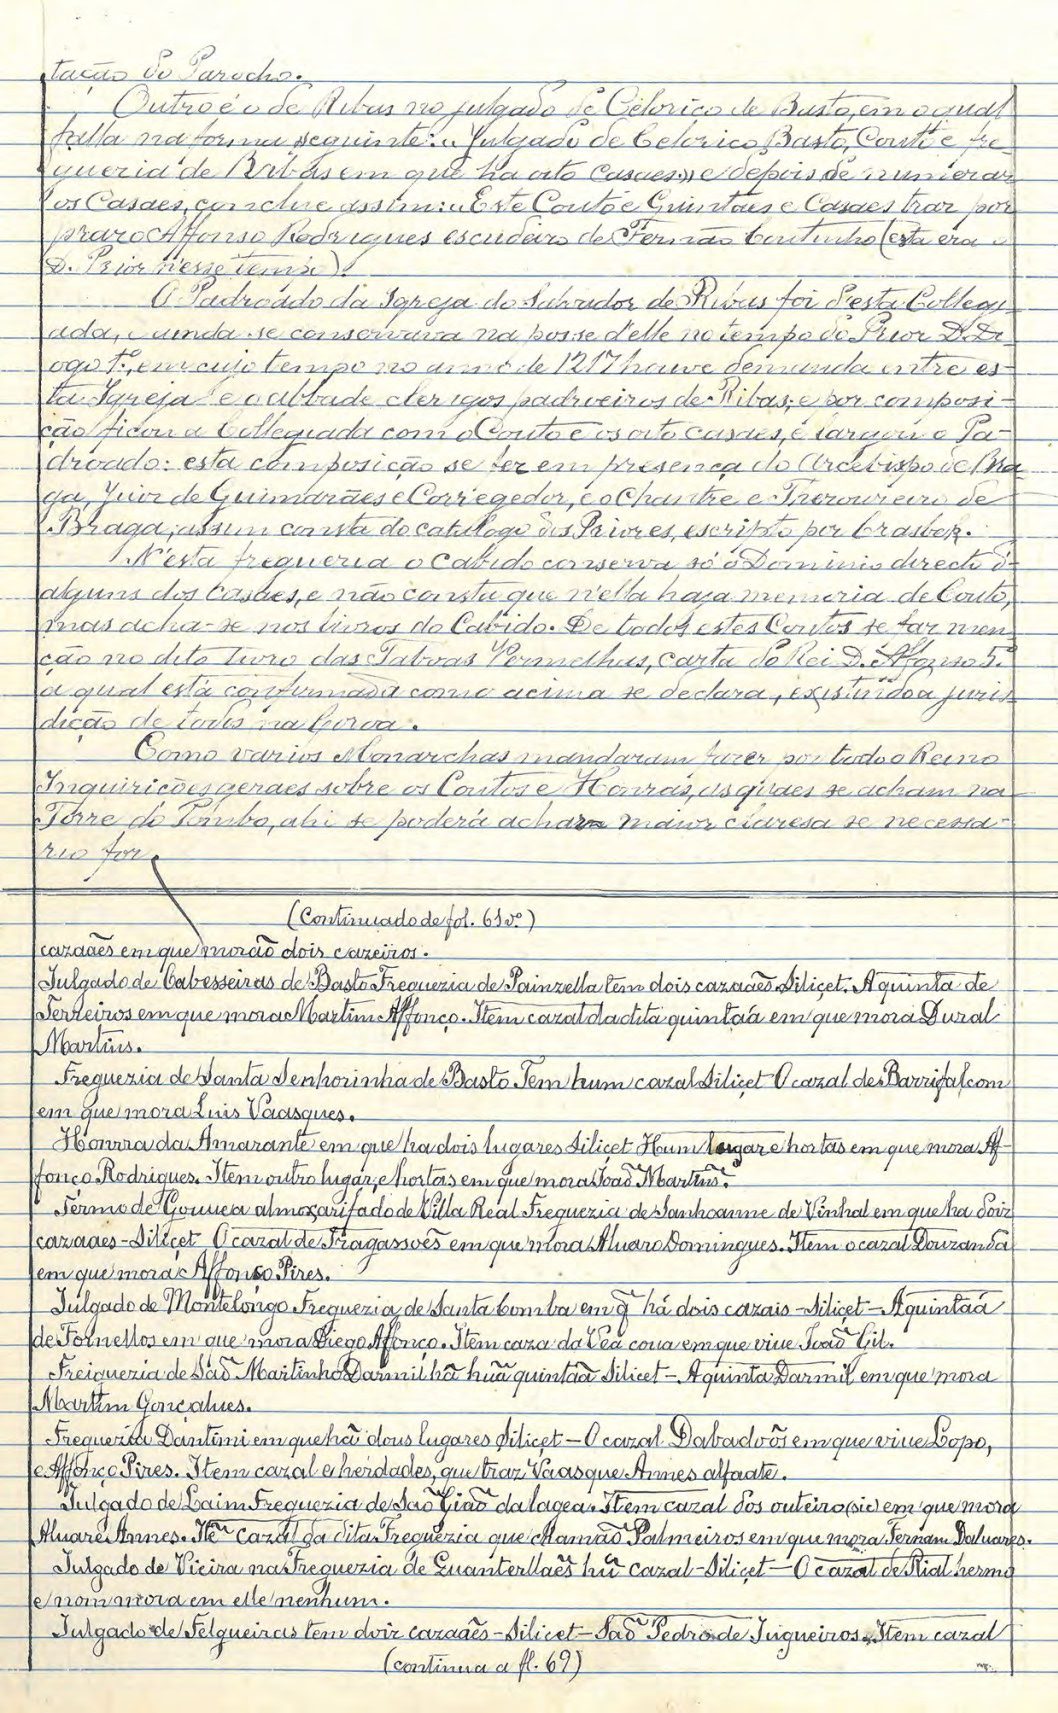 tação do Parocho.
Outro é o de Ribas no julgado de Celorico de Basto, em o qual
falla na forma seguinte: « Julgado de Celorico Basto, Coutto e fre-
guezia de Ribas em que ha oito casaes;» e depois de numerar
os Casaes, conclue assim: « Este Couto e Quintaes e Casaes traz por
prazo Affonso Rodrigues escudeiro de Fernão Coutinho (esta era o
D. Prior n'esse tempo).
O Padroado da Igreja do Salvador de Ribas foi d'esta Collegi-
ada, e ainda se conservava na posse d'elle no tempo do Prior D. Di-
ogo 1º, em cujo tempo no anno de 1217 houve demanda entre es-
ta Igreja e o abbade clerigos padroeiros de Ribas; e por composi-
ção ficou a Collegiada com o Couto e os oito casaes, e largou o Pa-
droado: esta composição se fez em presença do Arcebispo de Bra-
ga, Juiz de Guimarães e Corregedor, e o Chantre e Thezoureiro de
Braga; assim consta do catalogo dos Priores, escripto por Crasbek.
N'esta freguezia o Cabido conserva só o Dominio directo d'
alguns dos casaes, e não consta que n'ella haja memoria de Couto,
mas acha-se nos livros do Cabido. De todos estes Coutos se faz men-
ção no dito Livro das Taboas Vermelhas, carta do Rei D. Affonso 5.º
a qual está confirmada como acima se declara, existindo a juris-
dição de todos na Coroa.
Como varios Monarchas mandaram fazer por todo o Reino
Inquirições geraes sobre os Coutos e Honras, as quaes se acham na
Torre do Tombo, ahi se poderá achar maior clareza se necessa-
rio for.
(Continuado de fol. 61vº)
cazaães em que morão dois cazeiros.
Julgado de Cabesseiras de Basto Freguezia de Painzella tem dois cazaães Siliçet. A quinta de
Ferreiros em que mora Martim Affonço. Item cazal da dita quintaã em que mora Dural
Martins.
Freguezia de Santa Senhorinha de Basto Tem hum cazal Siliçet O cazal de Barrifal com
em que mora Luis Vaasques.
Honrra da Amarante em que ha dois lugares Siliçet Hum lugar e hortas em que mora Af-
fonço Rodrigues. Item outro lugar, e hortas em que mora Joaõ Martins.
Termo de Gouuea almoxarifado de Villa Real Freguezia de Sanhoanne de Vinhal em que ha doiz
cazaaes - Siliçet O cazal de Fragassoẽs em que mora Aluaro Domingues. Item o cazal Douranda
em que mora Affonso Pires.
Julgado de Montelongo Freguezia de Santa Comba em q̃ há dois cazais - Siliçet - A quintaã
de Fornellos em que mora Diego Affonço. Item caza da Veã coua em que viue Joaõ Gil.
Freiguezia de Saõ Martinho Darmil hã huã quintaã Silicet - A quinta Darmil em que mora
Martim Gonçalues.
Freguezia Dantimi em que hã dous lugares Siliçet - O cazal Dabadoõs em que viue Lopo,
e Affonço Pires. Item cazal e herdades, que traz Vaasque Annes alfaate.
Julgado de Laim Freguezia de Saõ Giaõ da lagea. Item cazal dos outeiro (sic) em que mora
Aluare Annes. Itẽ cazal da dita Freguezia que chamaõ Palmeiros em que mora Fernam Daluares.
Julgado de Vieira na Freguezia de Guanterllaẽs hũ cazal - Siliçet - O cazal de Rial hermo
e nom mora em elle nenhum.
Julgado de Felgueiras tem doiz cazaães - Silicet - Saõ Pedro de Jugueiros. Item cazal
(continua a fl. 69)